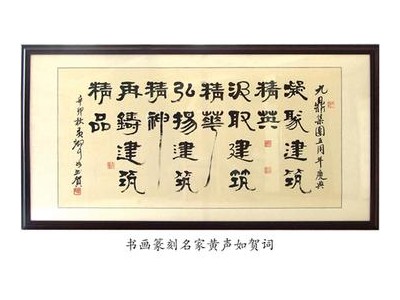 九鼎集團五周年慶典
凝聚建筑
精英
汲取建筑
精華
弘揚建筑
精神
再鑄建筑
精品
辛卯秋
书画篆刻名家黄声如贺词